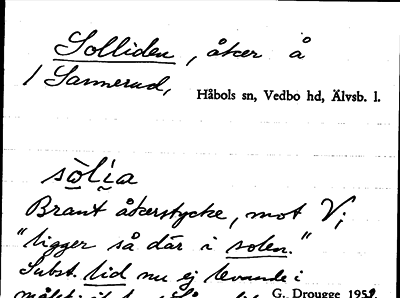 Solliden, åker å
/ Sannerud,
Håbols sn, Vedbo hd, Älvsb. l.
sòlia
Brant åkerstycke, mot V;
"ligger så där i solen."
Subst. lid nu ej levande i
G. Drougge 1959.
målet